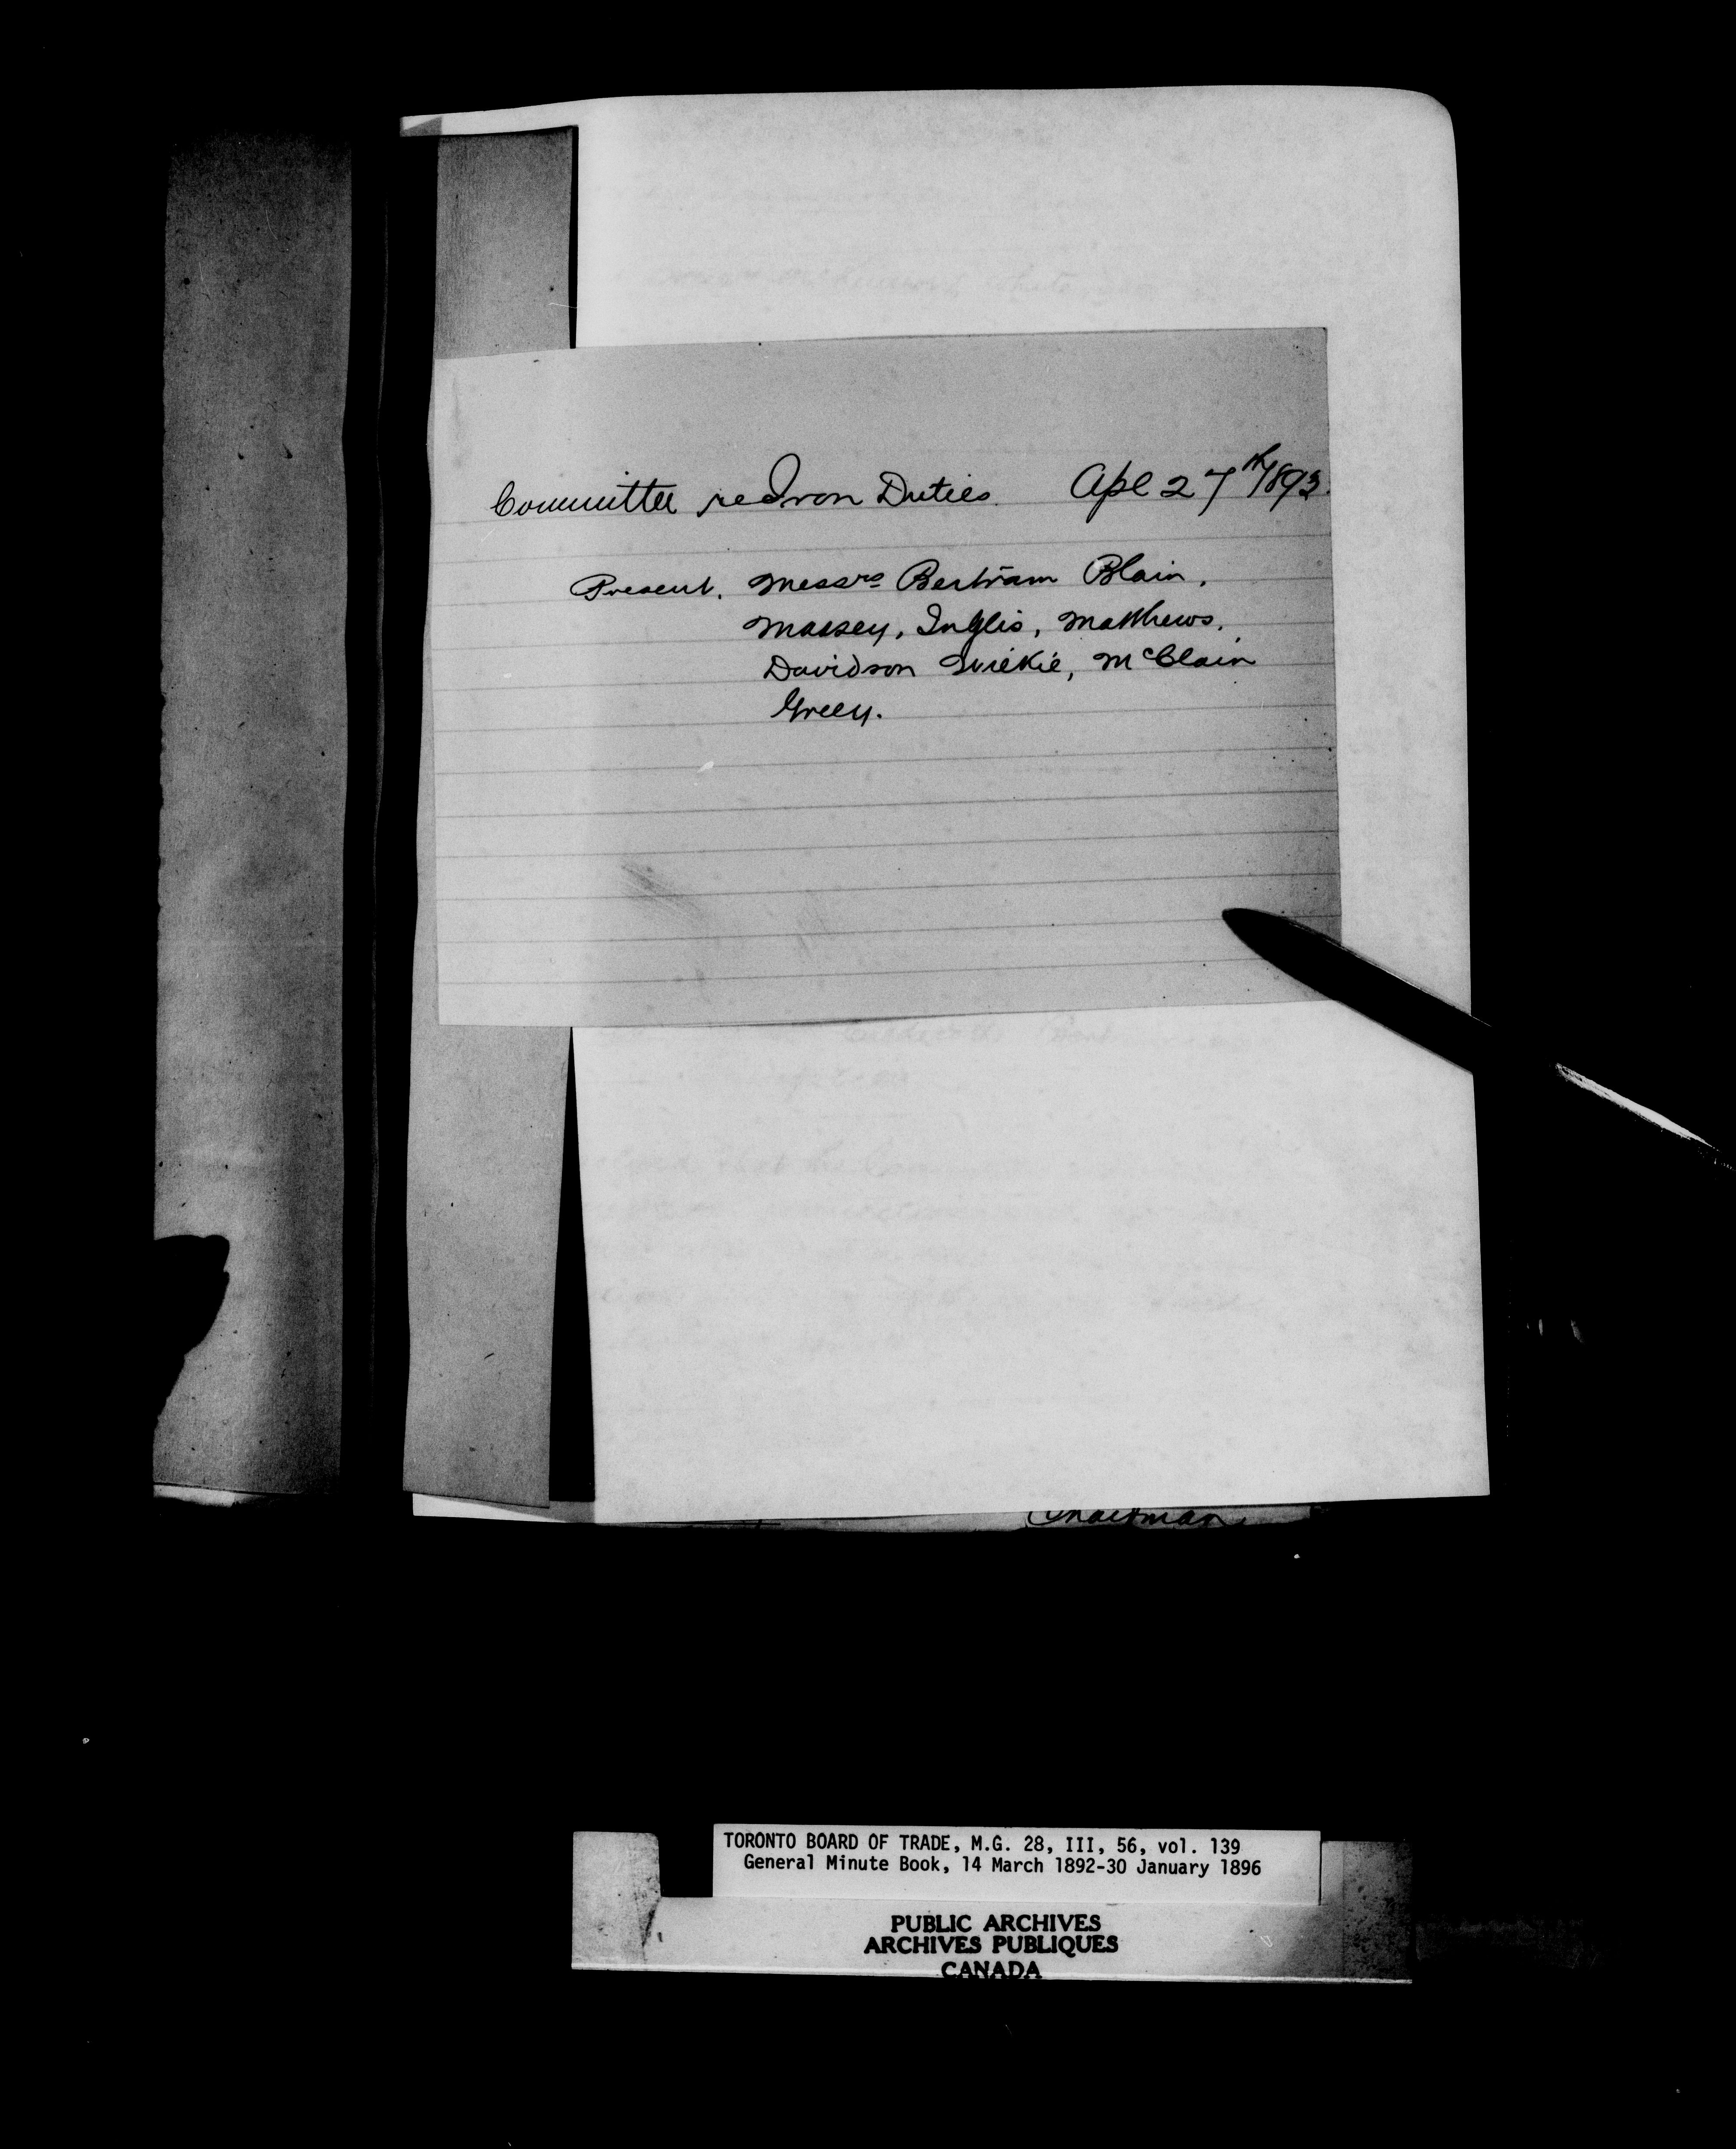 Committee re Iron Duties. Apl 27th 1893.
Present. Messrs Bertram Blain,
Massey, Inglis, Matthews,
Davidson Wickie, McClain
Greey.
Chairman
TORONTO BOARD OF TRADE, M.G. 28, III, 56, vol. 139
General Minute Book, 14 March 1892-30 January 1896
PUBLIC ARCHIVES
ARCHIVES PUBLIQUES
CANADA